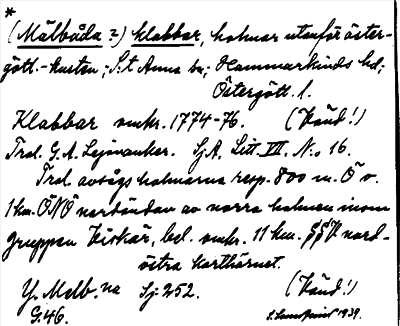 *
(Målbåda?) klabbar, holmar utanför öster-
gött.-kusten; S:t Anna sn; Hammarkinds hd;
Östergött. l.
Klabbar omkr. 1774-76. (Känd!)
Trol. G.A. Lejonanker. SjA. Litt. VII. N:o 16.
Trol. avsågs holmarna resp. 800 m. Ö o.
1 km. ÖNÖ nordändan av norra holmen inom
gruppen Kiskär, bel. omkr. 11 km. nord-
östra karthörnet.
Y. Medb. na Sj. 252. (Känd!)
G.46. 1939.